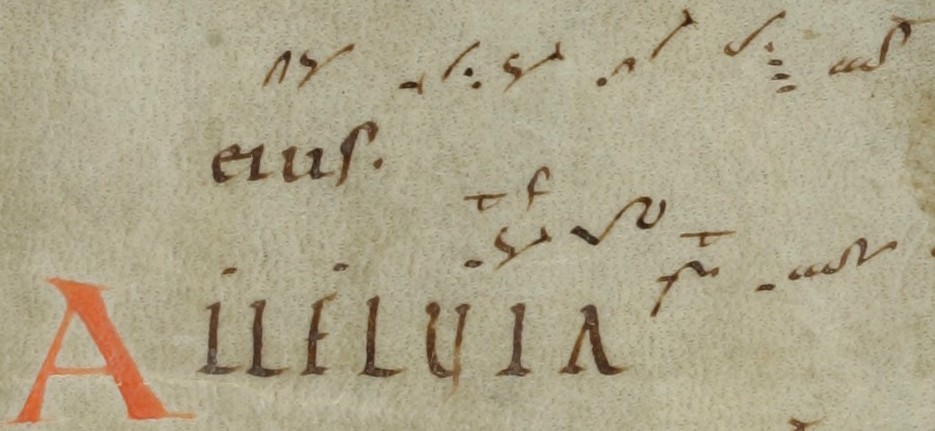 eiuſ.
ALLELUIA